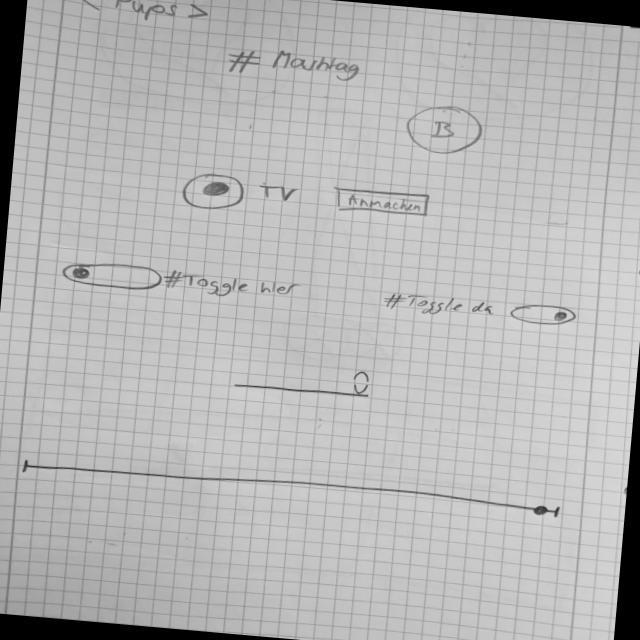 < Pups >
# Mashtag
B
TV Anmachen
#Toggle hier
#Toggle da